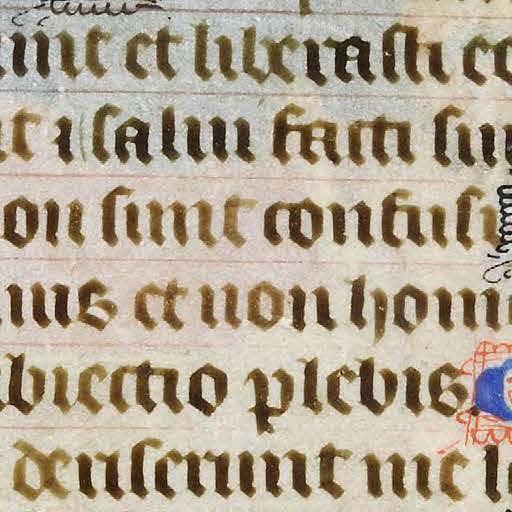 unt et liberasti eo
nt ⁊ salui facti sun
on sunt confusi
mis et non homo
abiectio plebis.
deriserunt me